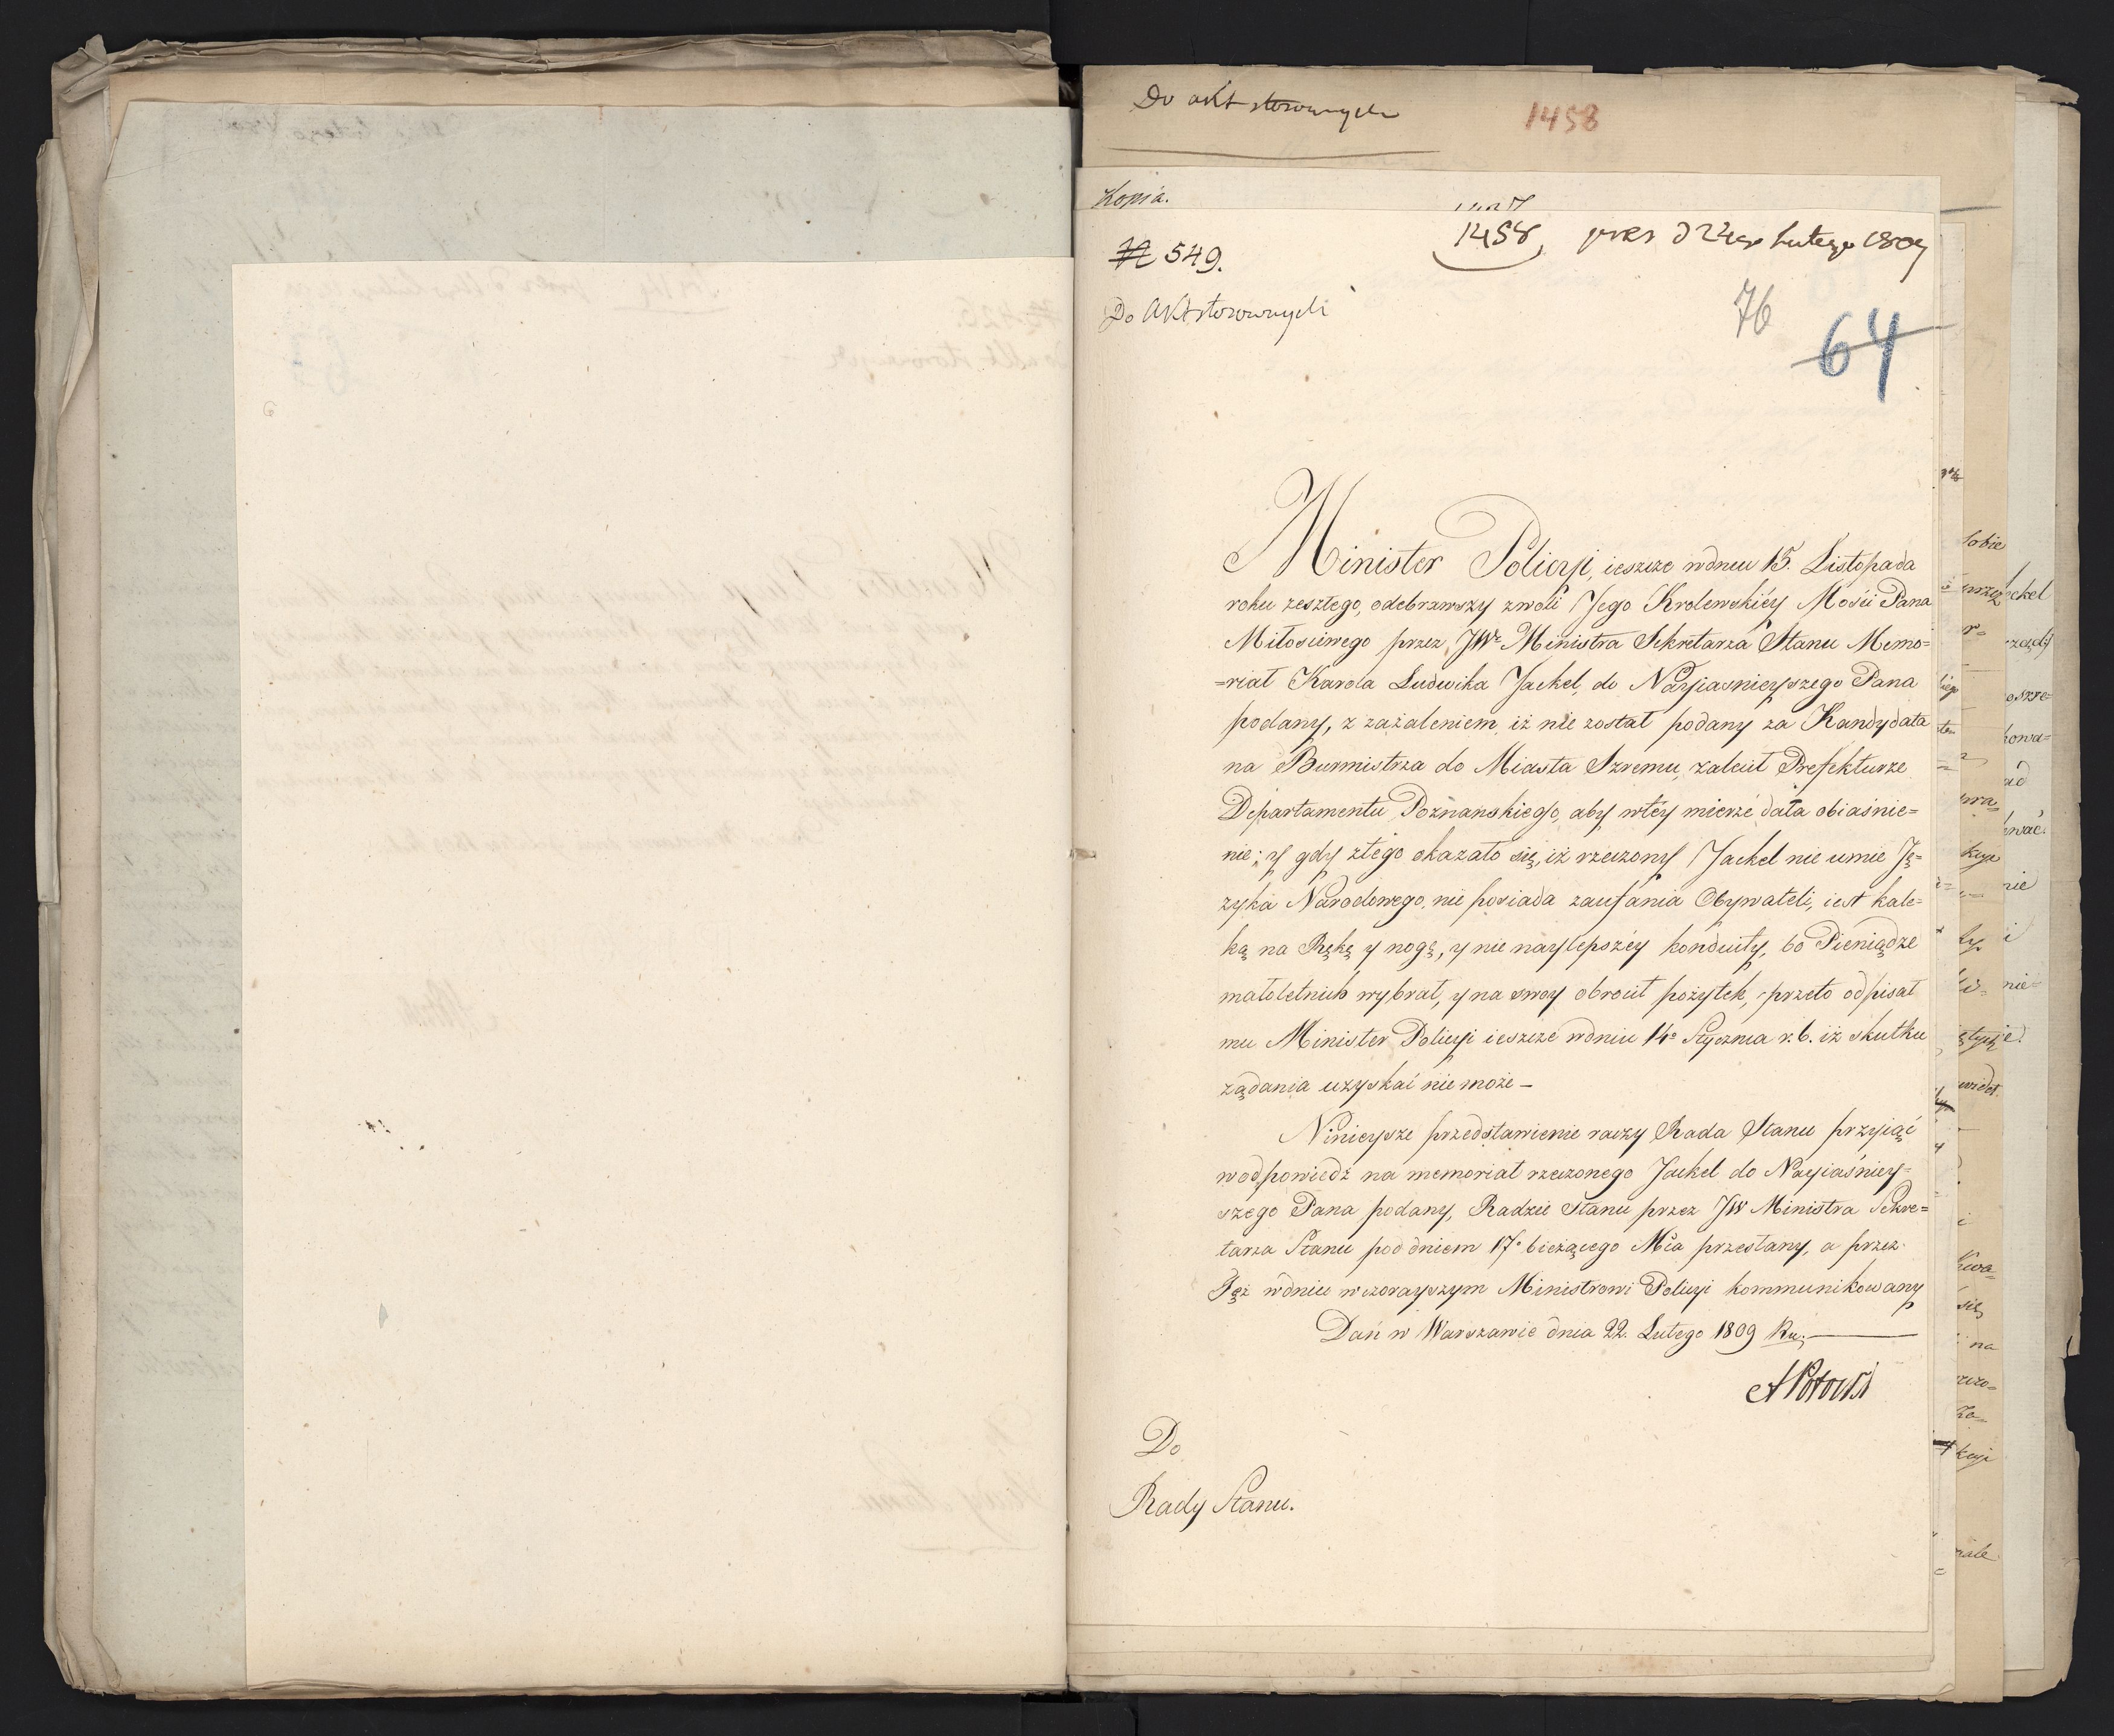 Do akt stosownych
1458
Kopia.
№ 549.
1458, pres d 24go Lutego 1809
Do Akt stosownych
76
64
Minister Policyi, ieszcze wdniu 15. Listopada
roku zeszłego, odebrawszy zwoli Jego Krolewskiéy Mośći Pana
Miłosciwego przez JWo Ministra Sekretarza Stanu Memo=
=riał Karola Ludwika Jackel, do Nayiasnieyszego Pana
podany, z zażaleniem, iż nie został podany za Kandydata
na Burmistrza do Miasta Szremu, zalecił Prefekturze
Departamentu Poznanskiego, aby wtéy mierze dała obiaśnie=
nie; y gdy ztego okazało się, iż rzeczony Jackel nie umie Ję=
zyka Narodowego, nie posiada zaufania Obywateli, iest kale=
ką na Rękę y nogę, y nie naylepszéy konduity, bo Pieniądze
małoletnich wybrał, y na swoy obrocił pożytek, przeto odpisał
mu Minister Policyi ieszcze wdniu 14o Stycznia r. b. iż skutku
ządania uzyskać nie może —
Ninieysze przedstawienie raczy Rada Stanu przyiąć
wodpowiedź na memoriał rzeczonego Jackel do Nayiaśniey=
szego Pana podany, Radzie Stanu przez JW Ministra Sekre=
tarza Stanu pod dniem 17o bieżącego Mca przesłany, a przez
Tęż wdniu wczorayszym Ministrowi Policyi kommunikowany
Dań w Warszawie dnia 22. Lutego 1809 Ru.
APotocki
Do
Rady Stanu.